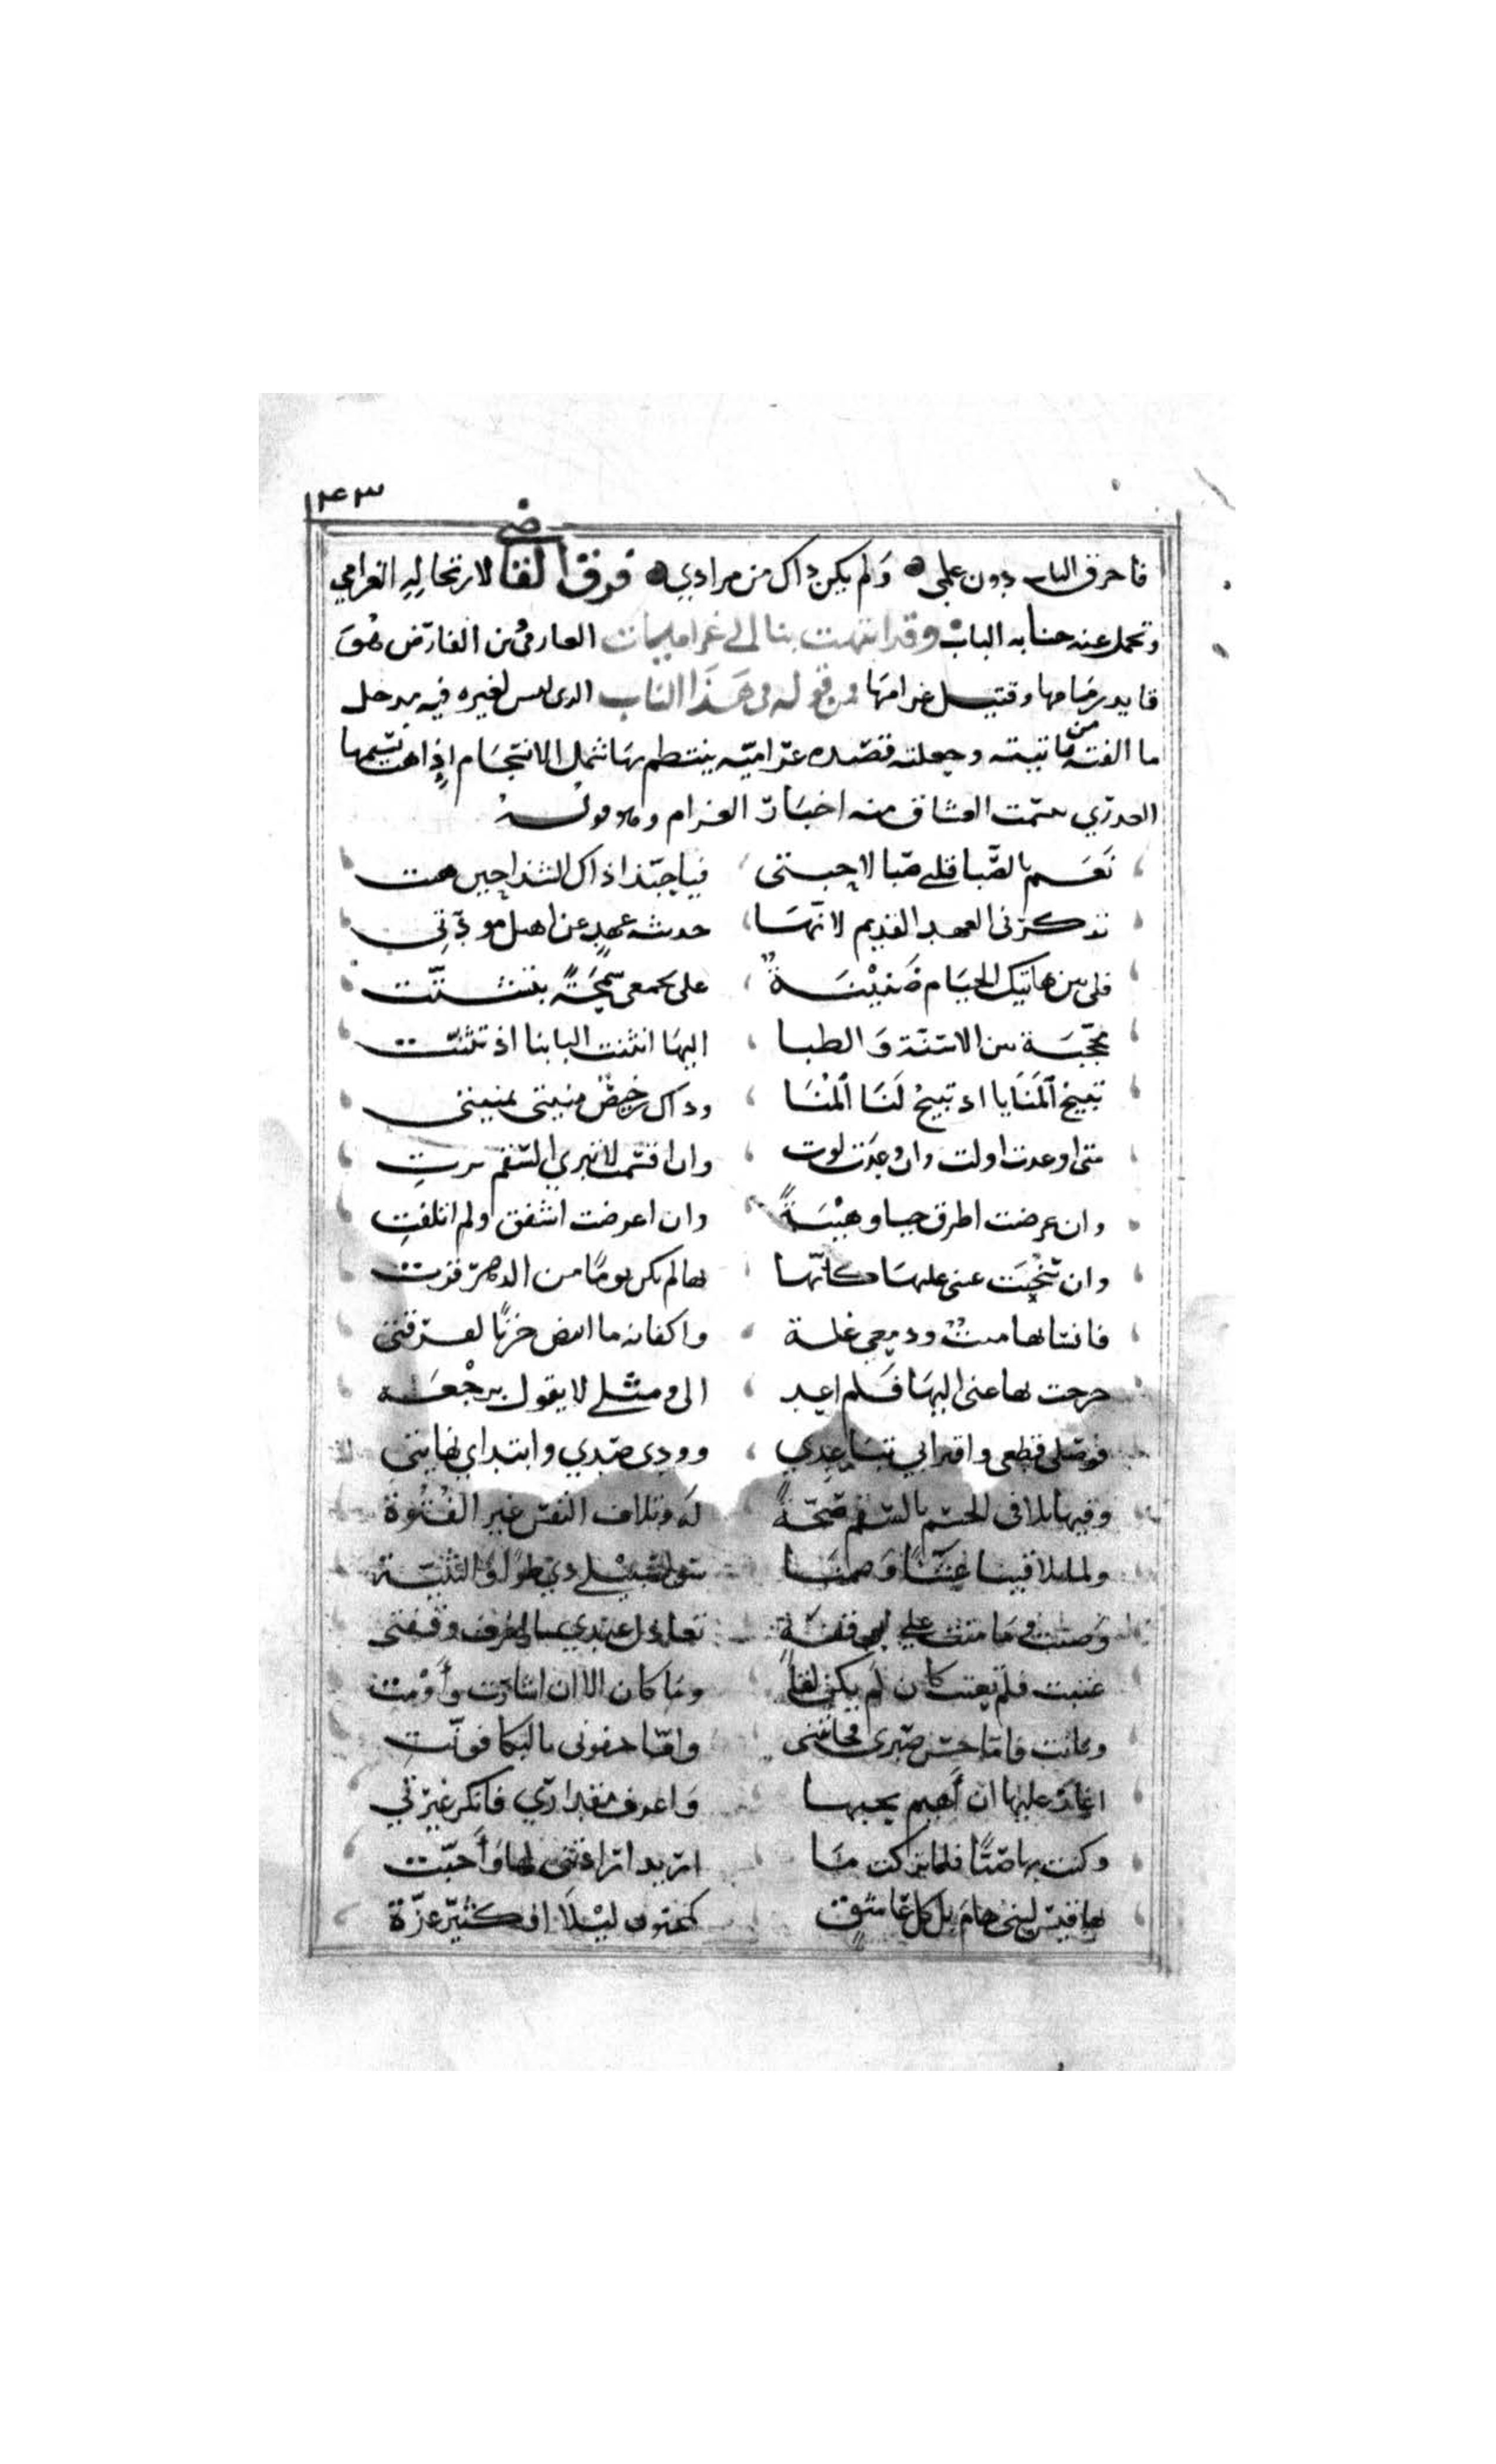 ١٤٣
فاحرق الباب دون علمي ولم يكن ذاك من مرادي فرق القاضي لارتجاليه الغرامي
وتحمل عنه جنايه الباب وقد انتهت بنا الى غراميات العارف بن الفارض فهو
قايد زمامها وقتيل غرامها ومن قوله في هذا الباب الذى ليس لغيره فيه مدخل
ما الفته من تايته وجعلته قصيده غراميه ينتظم بها شمل الانسجام اذا هب نسيمها
العذري تنسمت العشاق منه اخبار الغرام وهو قوله
نعم بالصبا قلبي صبا لاحبتي فيا حبذا ذاك الشذا حين هبت
تذكرني العهد القديم لانها حديثة عهد عن اهيل مودتي
فلي بين هاتيك الخيام ضنينة على بجمعي سمحة بتشتت
محجبة بين الاسنة والظبا اليها انثنت البابنا اذ تثنت
تتيح المنايا اذ تبيح لنا المنا وذاك رخيص منيتي بمنيتي
متى اوعدت اولت وان وعدت لوت وان اقسمت لا تبري السقم برت
وان عرضت اطرق حيا وهيبة وان اعرضت اشفق ولم اتلفت
وان نحبت عنى عليها كانها بها لم يكن يوما من الدهر قرت
فانسانها ميت ودمعي غسله واكفانه ما ابيض حزنا لفرقتي
خرجت بها عنى اليها فلم اعد الى ومثلي لا يقول برجعه
فوصلي قطعي واقترابي تباعدي وودي صدي وابتداي نهايتي
وفيها تلافى الجسم بالسقم صحة له وتلاف النفس عين الفتوة
ولما تلاقينا عشاء وضمنا سواء سبيلي ذي طوى والثنية
وضنت وما منت على بوقفة تعادل عندي بالمعرف وقفتي
عتبت فلم تعتب كان لم يكن لقا وما كان الا ان اشارت واومت
وبانت فاما حسن صبري فخانني واما جفوني بالبكا فوفت
اغار عليها ان اهيم بحبها واعرف مقداري فانكر غيرتي
وكنت بها صبا فلما تركت ما اريد ارادتني لها واحبت
بها قيس لبنى هام بل كل عاشق كمجنون ليلا او كثير عزة